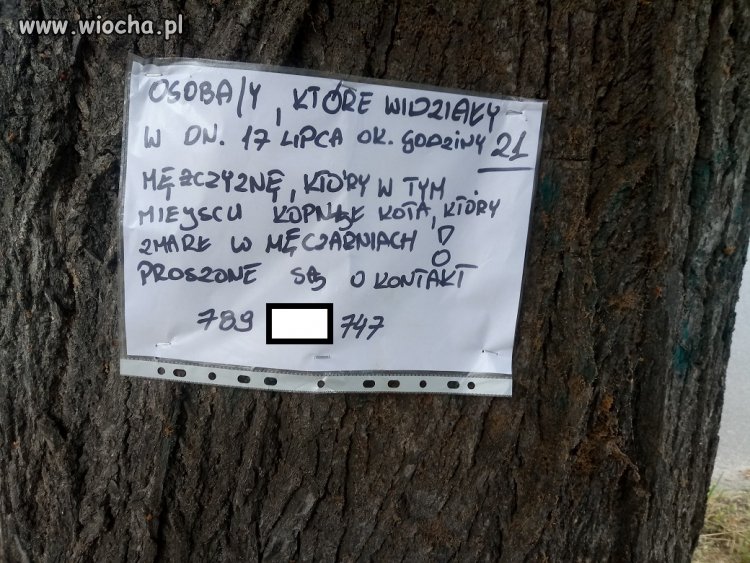 www.wiocha.pl
OSOBA/Y, KTÓRE WIDZIAŁY
W DN. 17 LIPCA OK. GODZINY 21
MĘŻCZYZNĘ, KTÓRY W TYM
MIEJSCU KOPNĄŁ KOTA, KTÓRY
ZMARŁ W MĘCZARNIACH !
PROSZONE SĄ O KONTAKT
789 747